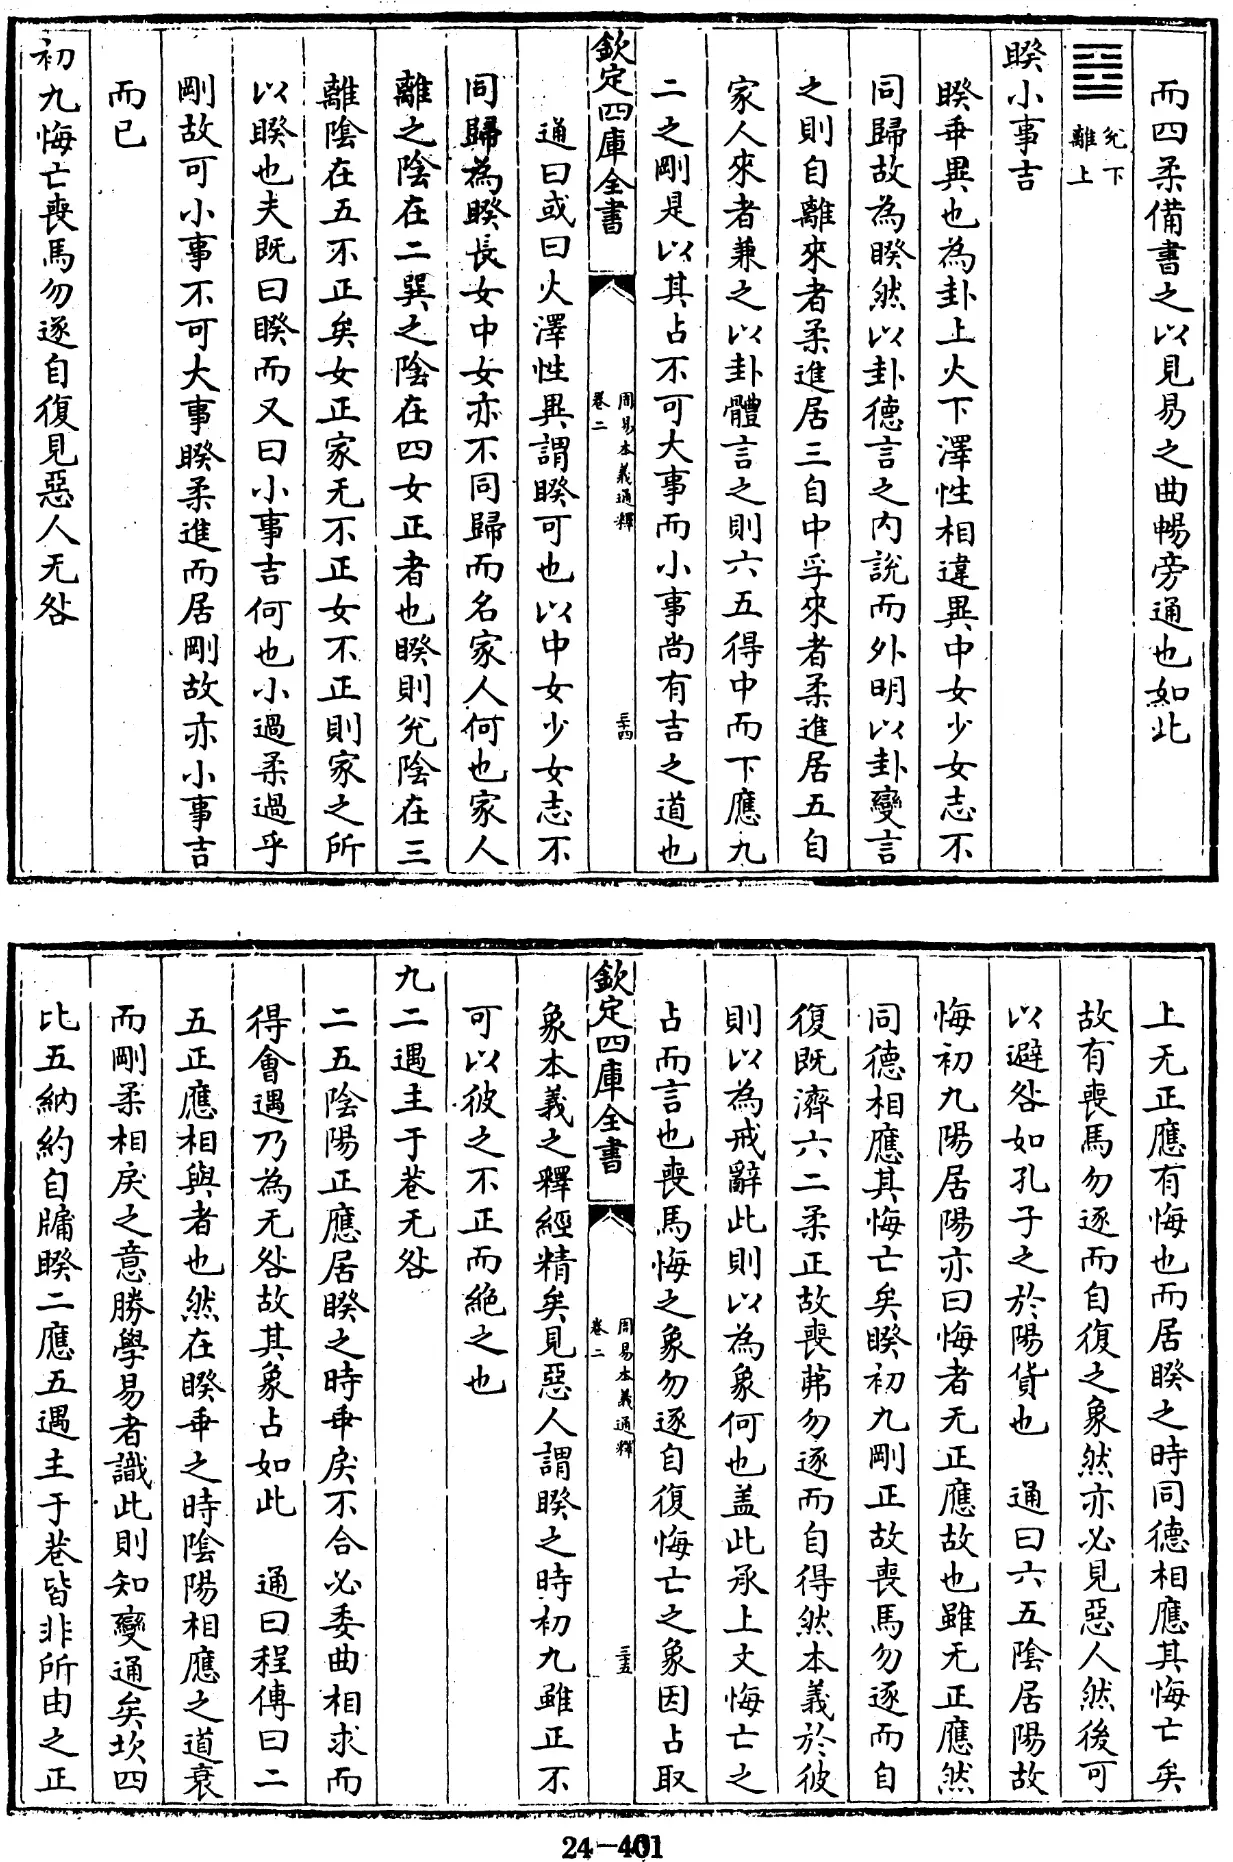 而四柔備書之以見易之曲暢旁通也如此
兊下
離上
睽小事吉
睽乖異也為卦上火下澤性相違異中女少女志不
同歸故為睽然以卦德言之内說而外明以卦變言
之則自離來者柔進居三自中孚來者柔進居五自
家人來者兼之以卦體言之則六五得中而下應九
二之剛是以其占不可大事而小事尚有吉之道也
欽定四庫全書
周易本義通釋
卷二
三十四
通曰或曰火澤性異謂睽可也以中女少女志不
同歸為睽長女中女亦不同歸而名家人何也家人
離之陰在二巽之陰在四女正者也睽則兊陰在三
離陰在五不正矣女正家无不正女不正則家之所
以睽也夫既曰睽而又曰小事吉何也小過柔過乎
剛故可小事不可大事睽柔進而居剛故亦小事吉
而已
初九悔亡喪馬勿逐自復見惡人无咎
上无正應有悔也而居睽之時同德相應其悔亡矣
故有喪馬勿逐而自復之象然亦必見惡人然後可
以避咎如孔子之於陽貨也 通曰六五陰居陽故
悔初九陽居陽亦曰悔者无正應故也雖无正應然
同德相應其悔亡矣睽初九剛正故喪馬勿逐而自
復既濟六二柔正故喪茀勿逐而自得然本義於彼
則以為戒辭此則以為象何也盖此承上文悔亡之
占而言也喪馬悔之象勿逐自復悔亡之象因占取
欽定四庫全書
周易本義通釋
卷二
三十五
象本義之釋經精矣見惡人謂睽之時初九雖正不
可以彼之不正而絶之也
九二遇主于巷无咎
二五陰陽正應居睽之時乖戾不合必委曲相求而
得會遇乃為无咎故其象占如此 通曰程傳曰二
五正應相與者也然在睽乖之時陰陽相應之道衰
而剛柔相戾之意勝學易者識此則知變通矣坎四
比五納約自牖睽二應五遇主于巷皆非所由之正
24-401